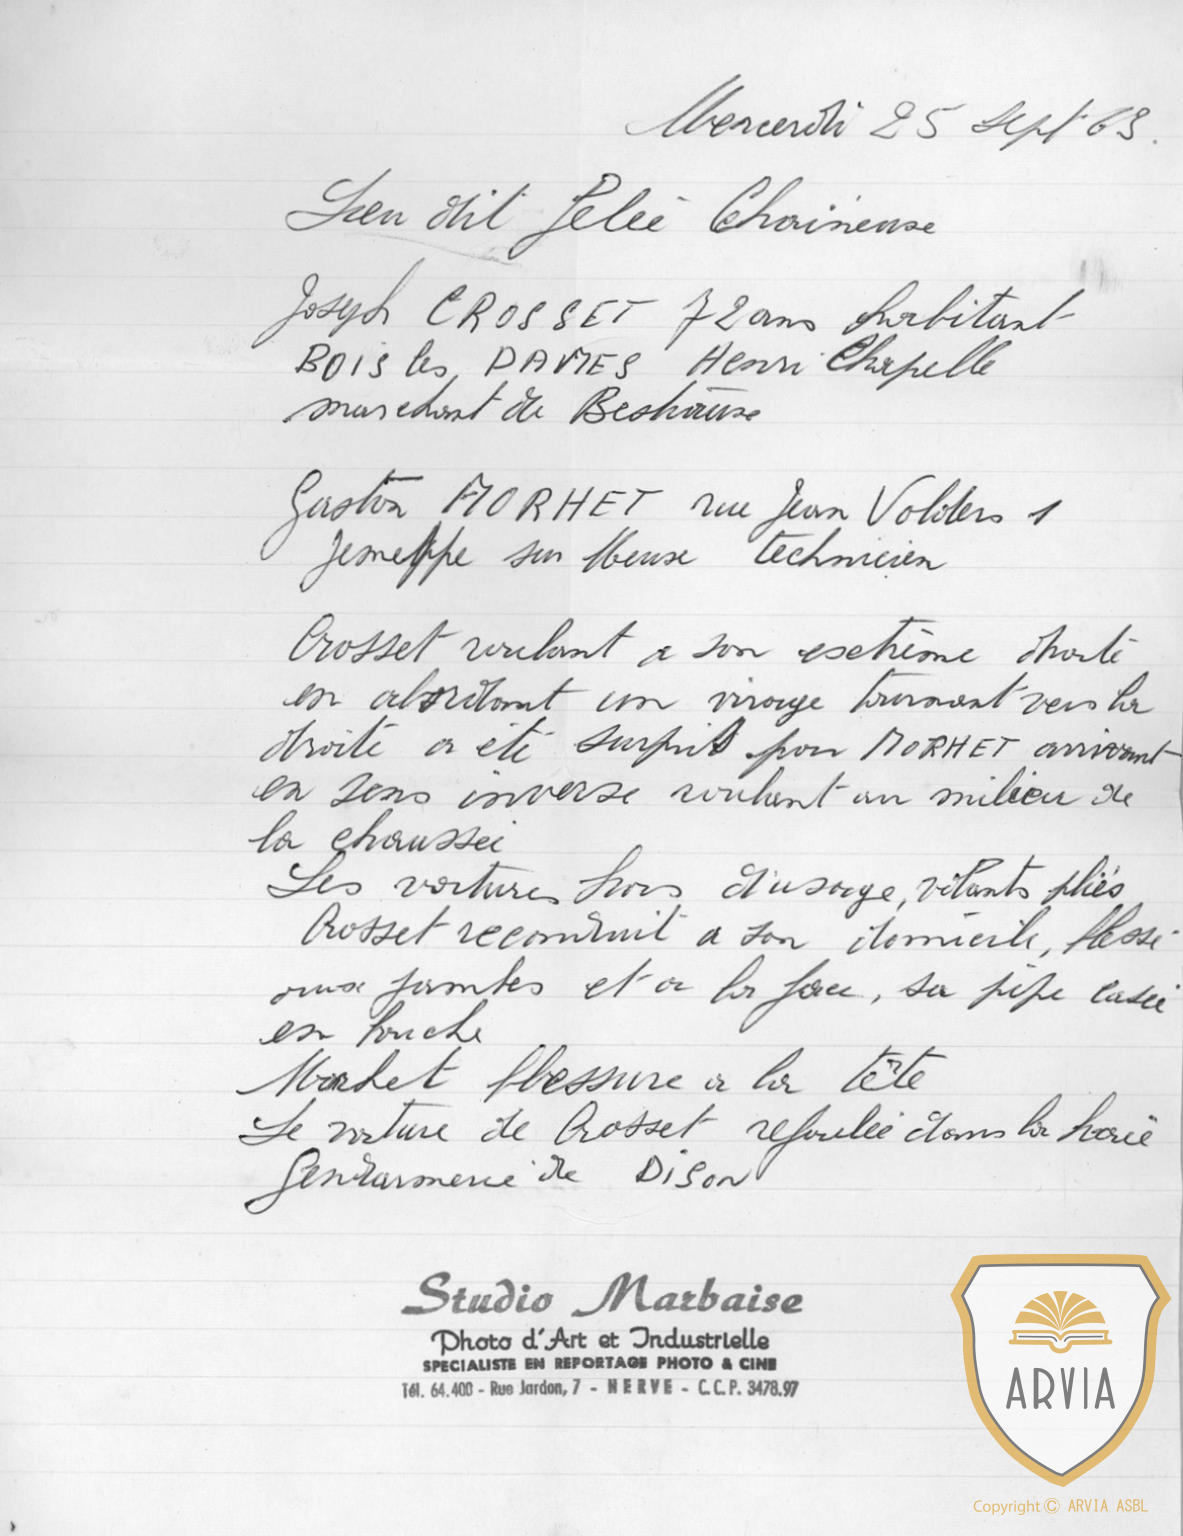 Mercredi 25 sept 63.
Lieu dit Chaineuse
Joseph CROSSET 72 ans habitant
BOIS les DAMES Henri Chapelle
marchant de Bestiaux
Gaston MORHET rue Jean Volders 1
Jemeppe sur Meuse technicien
Crosset roulant a son extrème droite
en abordant un virage tournant vers la
droite a été surpris par MORHET arrivant
en sens inverse roulant au milieu de
la chaussée
Les voitures hors d'usage, volants pliés
Crosset reconduit a son domicile, blessé
aux jambes et a la face, sa pipe casée
en bouche
Morhet blessure a la tête
Le voiture de Crosset refoulée dans la haie
Gendarmerie de Dison
Studio Marbaise
Photo d'Art et Industrielle
SPECIALISTE EN REPORTAGE PHOTO & CINE
Tél. 64.400 - Rue Jardon, 7 - HERVE - C.C.P. 3478.97
ARVIA
Copyright © ARVIA ASBL